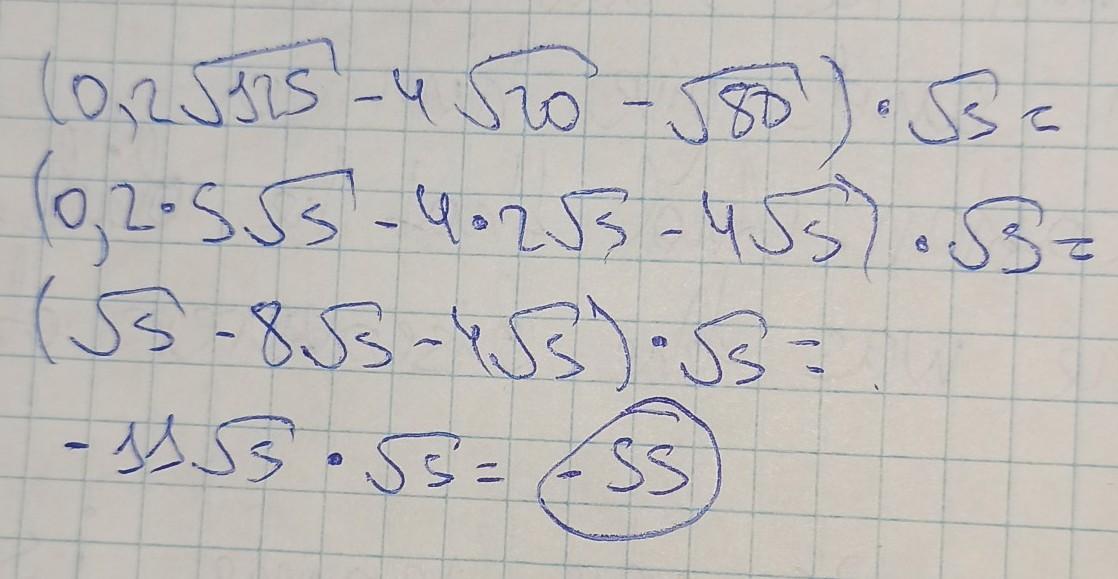 (0,2√125 - 4√20 - √80) · √5 =
(0,2·5√5 - 4·2√5 - 4√5) · √5 =
(√5 - 8√5 - 4√5) · √5 =
-11√5 · √5 = -55